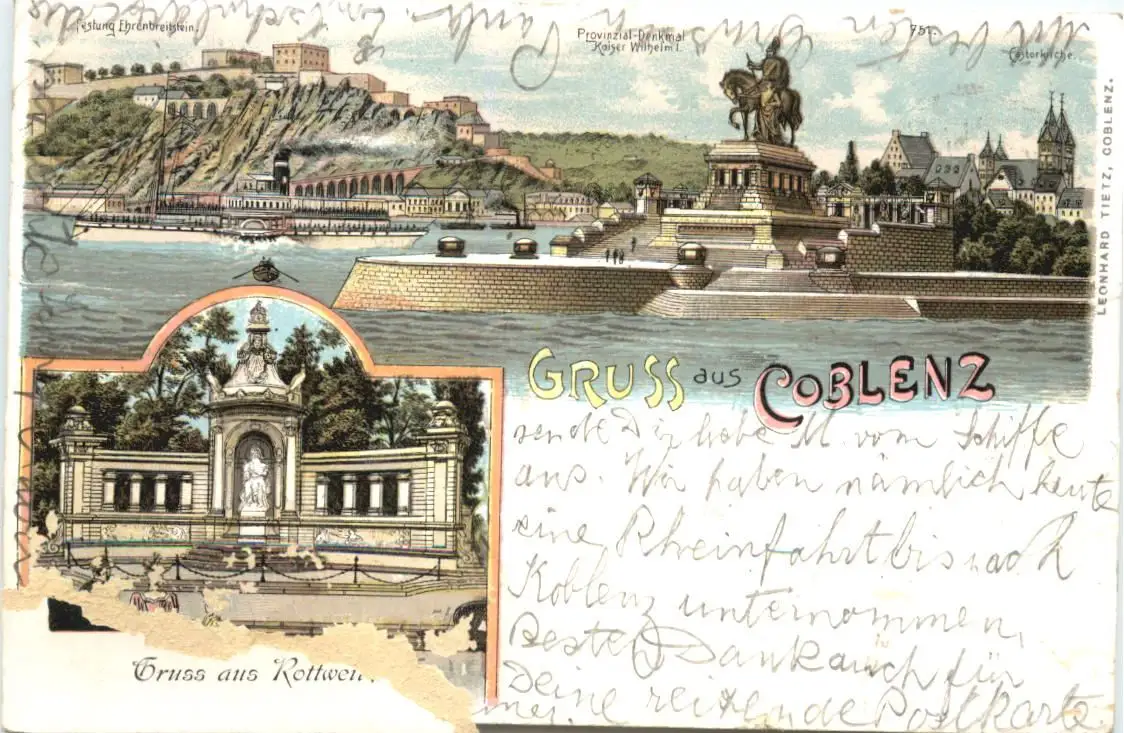 Festung Ehrenbreitstein.
Provinzial-Denkmal
Kaiser Wilhelm I.
751.
Castorkirche.
LEONHARD TIETZ, COBLENZ.
GRUSS aus COBLENZ
sende Dir liebe M. vom Schiffe
aus. Wir haben nämlich heute
eine Rheinfahrt bis nach
Koblenz unternommen.
Besten Dank auch für
Deine reitende Postkarte.
Gruss aus Rottweil.